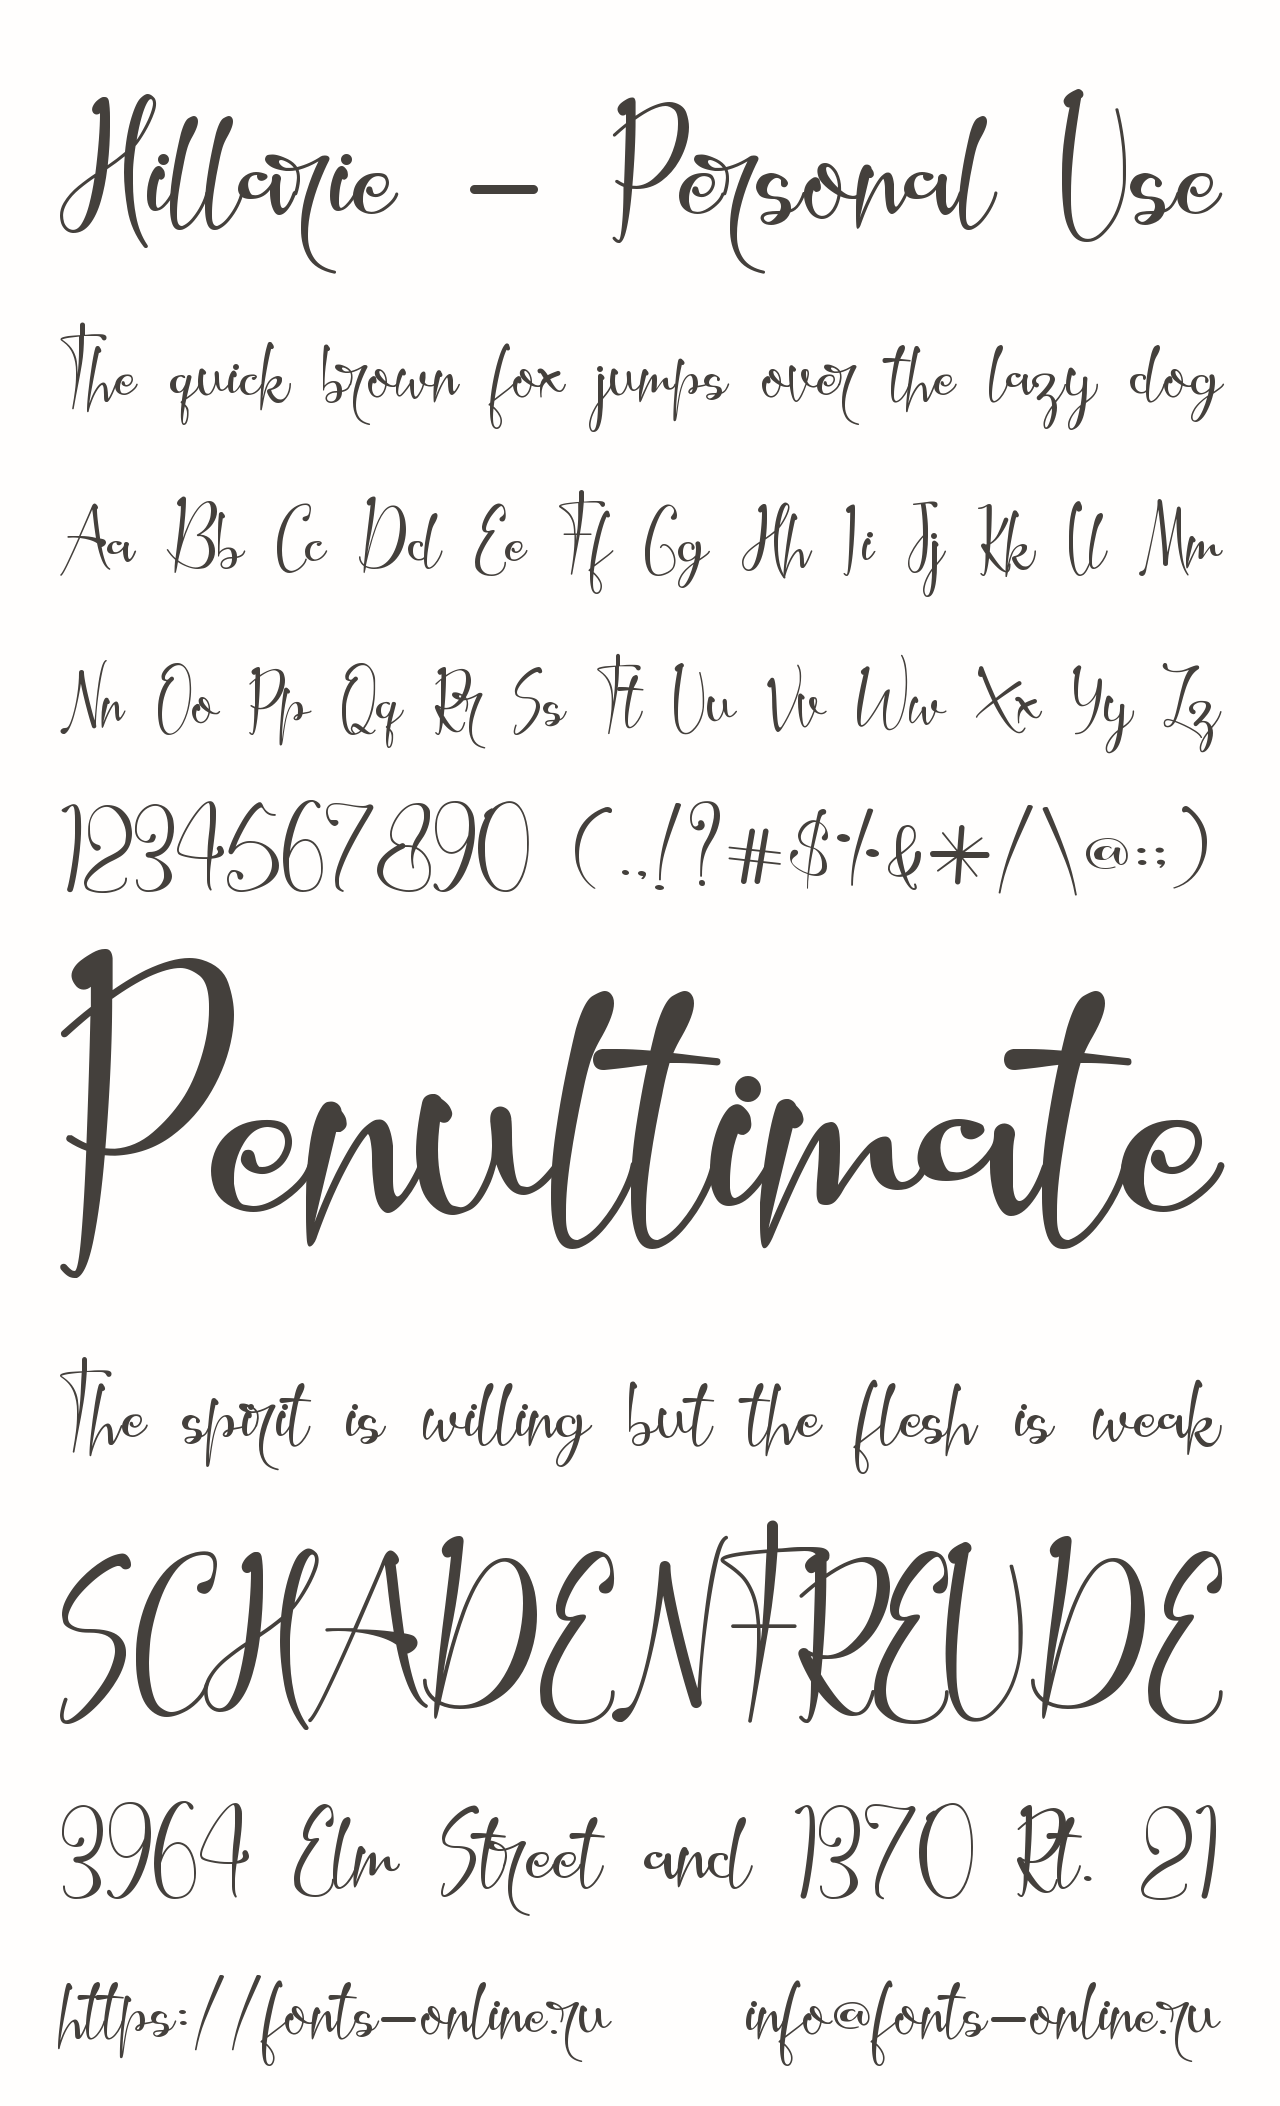 Hillarie - Personal Use
The quick brown fox jumps over the lazy dog
Aa Bb Cc Dd Ee Ff Gg Hh Ii Jj Kk Ll Mm
Nn Oo Pp Qq Rr Ss Tt Uu Vv Ww Xx Yy Zz
1234567890 (.,!?#$%&*/\@:;)
Penultimate
The spirit is willing but the flesh is weak
SCHADENFREUDE
3964 Elm Street and 1370 Rt. 21
https://fonts-online.ru info@fonts-online.ru